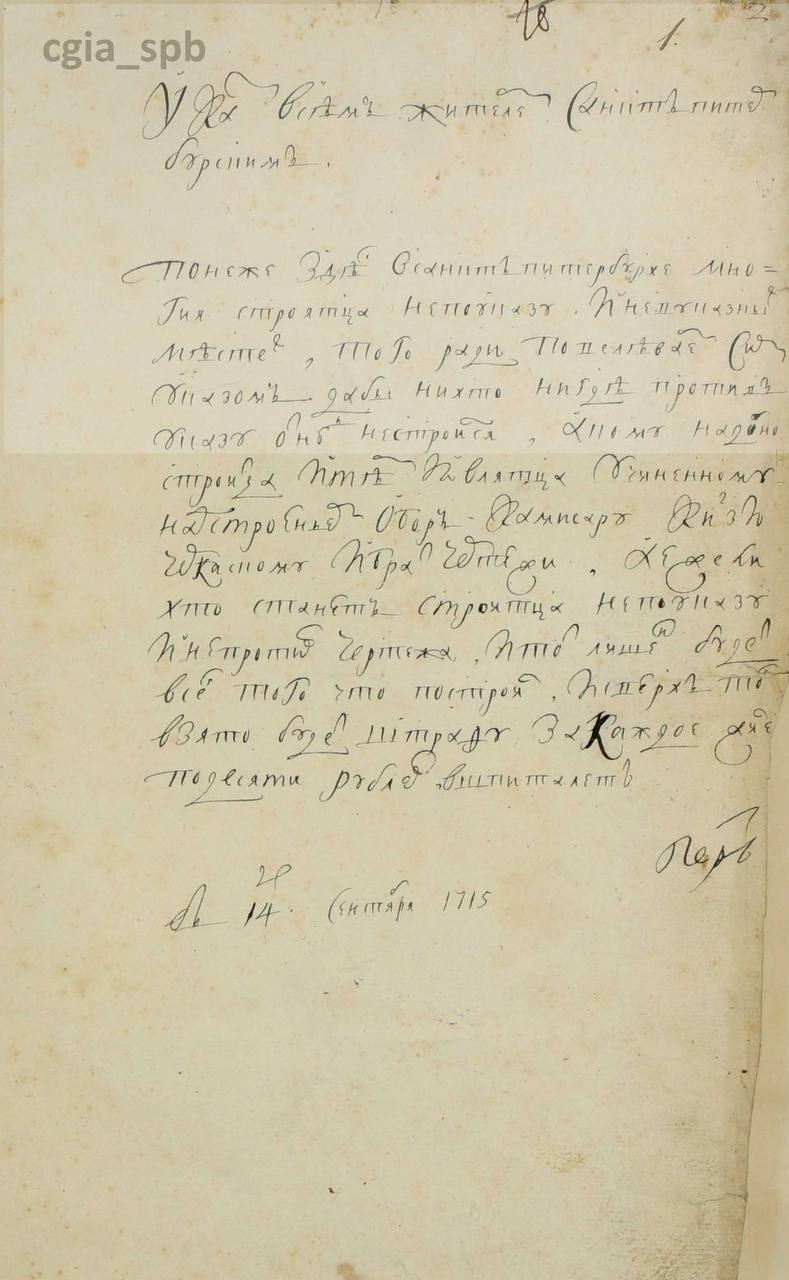 cgia_spb
18
1.
Указ всѣмъ жителем Санктъпитер
бурскимъ.
понеже здѣс всанктъпитербурхе мно=
гия строятца непоуказу. И невуказных
мѣстех, того ради повелѣвает сим
указомъ дабы нихто нигдѣ противъ
указу онб нестроился, акому надобно
строица и тѣ являтца учиненному
надстроением обор-камисару князю
черкасному ибрат чертежи, Ежели
хто станетъ строятца непоуказу
инепротив чертежа, и тот лишен будет
всего того что построил, исверхъ того
взято будет штрафу закаждое дяде
подесяти рублев, вшпиталетъ
Петръ
въ 14 ч. Сентября 1715